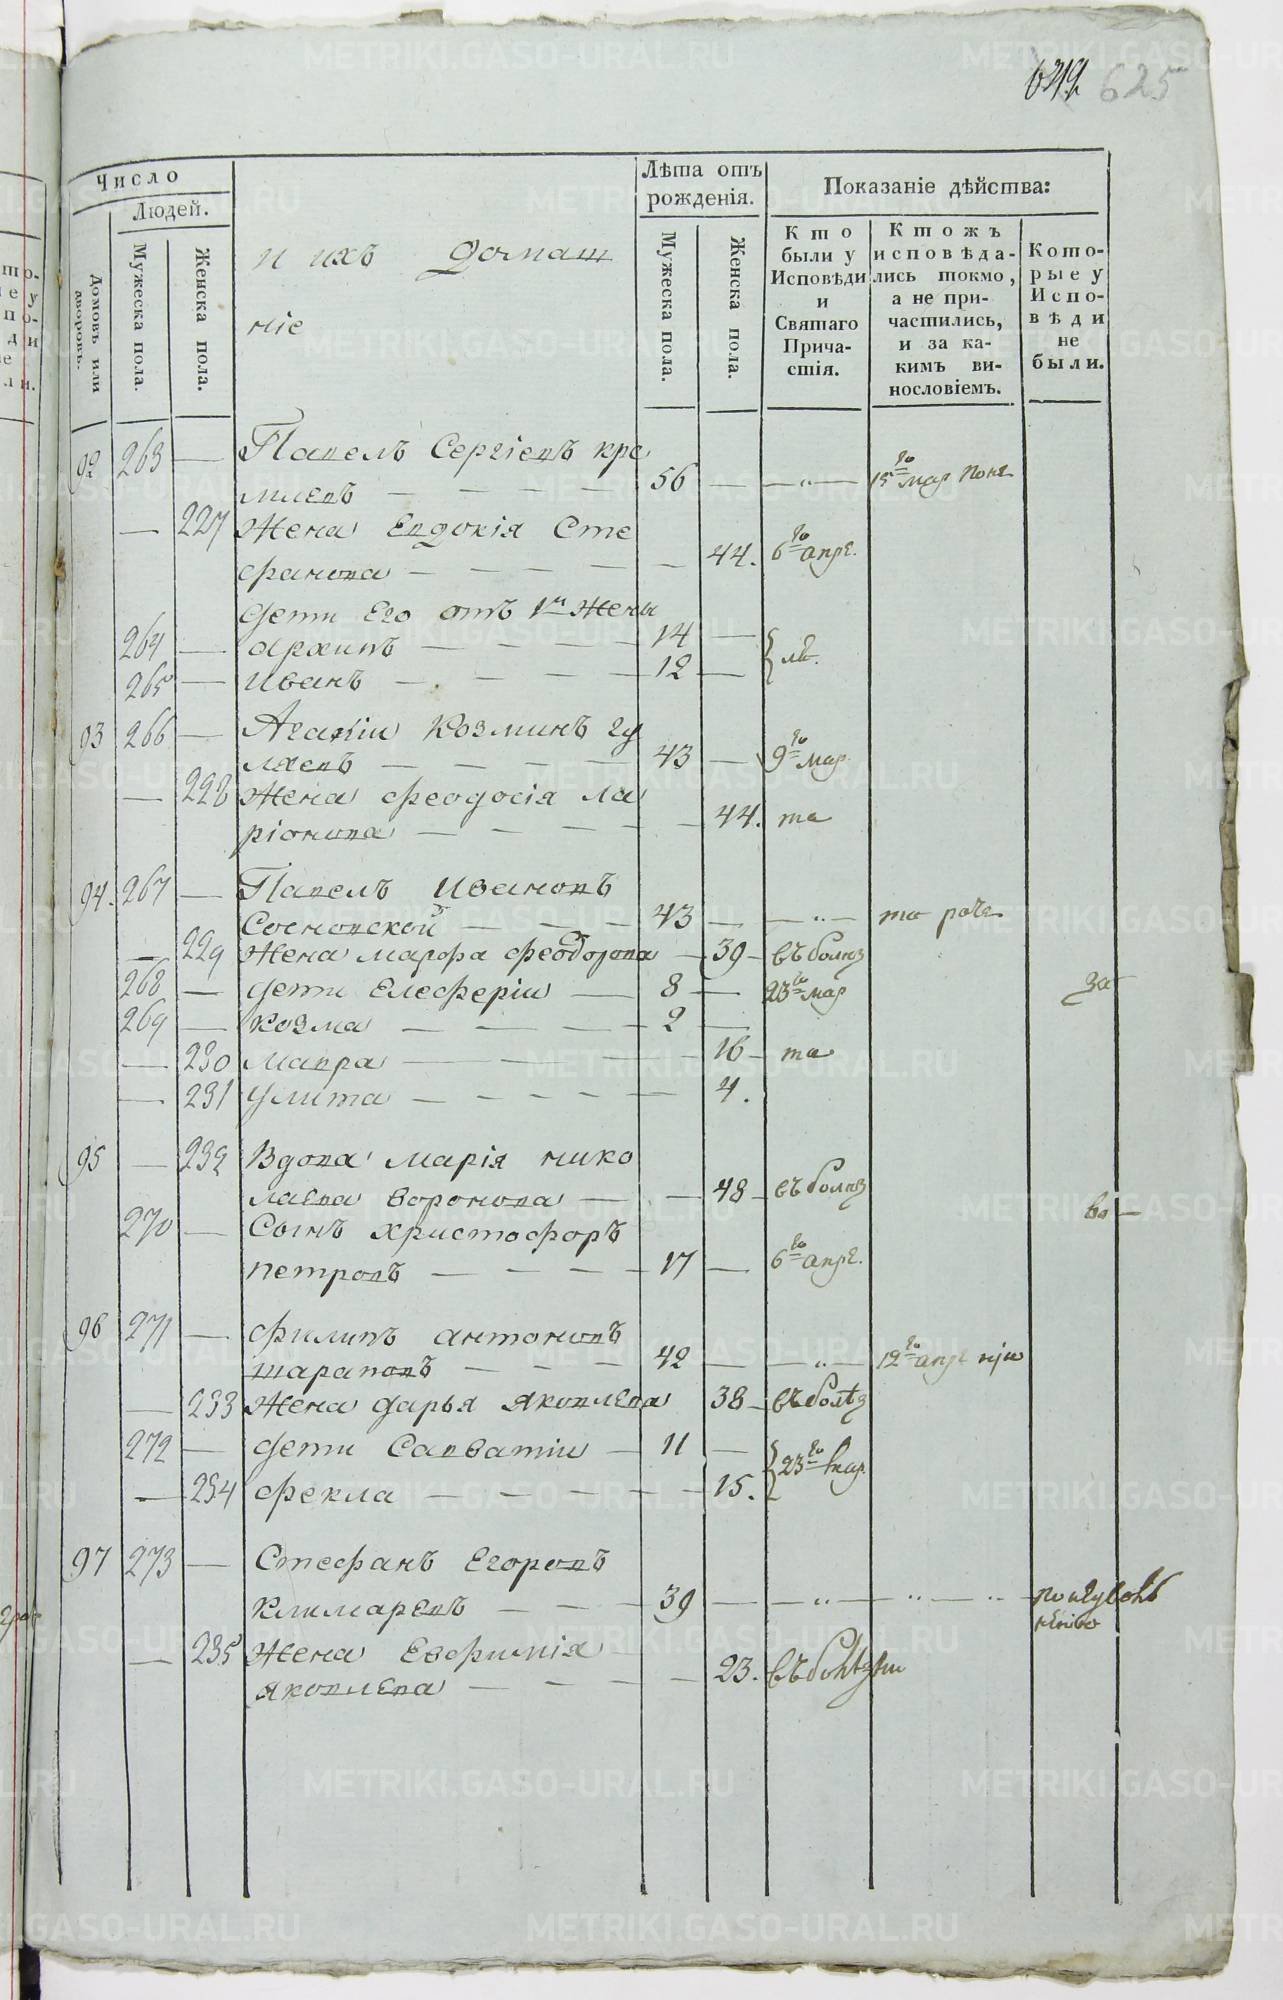 625
Число
Людей.
Домовъ или дворовъ.
Мужеска пола.
Женска пола.
и ихъ домаш
ніе
Лѣта отъ рожденія.
Мужеска пола.
Женска пола.
Показаніе дѣйства:
Кто были у Исповѣди и Святаго Прича-стія.
Ктожъ исповѣда-лись токмо, а не при-частились, и за ка-кимъ ви-нословіемъ.
Кото-рые у Испо-вѣди не были.
92 263 — Павелъ Сергіевъ кре
милевъ — — — — 56 — — „ — 15го мар
— 227 Жена Евдокія Сте
фанова — — — — — 44. 6го апре.
дети Его отъ 1й Жены
264 — архипъ — — — — 14 —
265 — Иванъ — — — — 12 —
93 266 — Агапіи Козминъ гу
ляевъ — — — — 43 — 9го мар.
— 228 Жена феодосія ла
ріонова — — — — — 44. та
94. 267 — Павелъ Ивановъ
Сосновской — — — 43 — — „ — то
— 229 Жена марфа феодорова — 39 — въ болѣз
268 — дети Елеферіи — 8 — 23го мар за
269 — Козма — — — — 2 —
— 230 Мавра — — — — — 16 — та
— 231 Улита — — — — — — 4.
95 — 232 Вдова марія нико
лаева воронова — — 48 — въ болѣз во —
270 — Сынъ христофоръ
петровъ — — — — 17 — 6го апре.
96 271 — филипъ антоновъ
шараповъ — — — 42 — — „ — 12го апре
— 233 Жена дарья яковлева 38 — въ болѣз
272 — дети Савватіи — 11 —
23го мар.
— 234 фекла — — — — — — 15.
97 273 — Стефанъ Егоровъ
Климаревъ — — — 39 — — „ — „ — „
— 235 Жена Евфимія
яковлева — — — — — 23. въ болѣзни